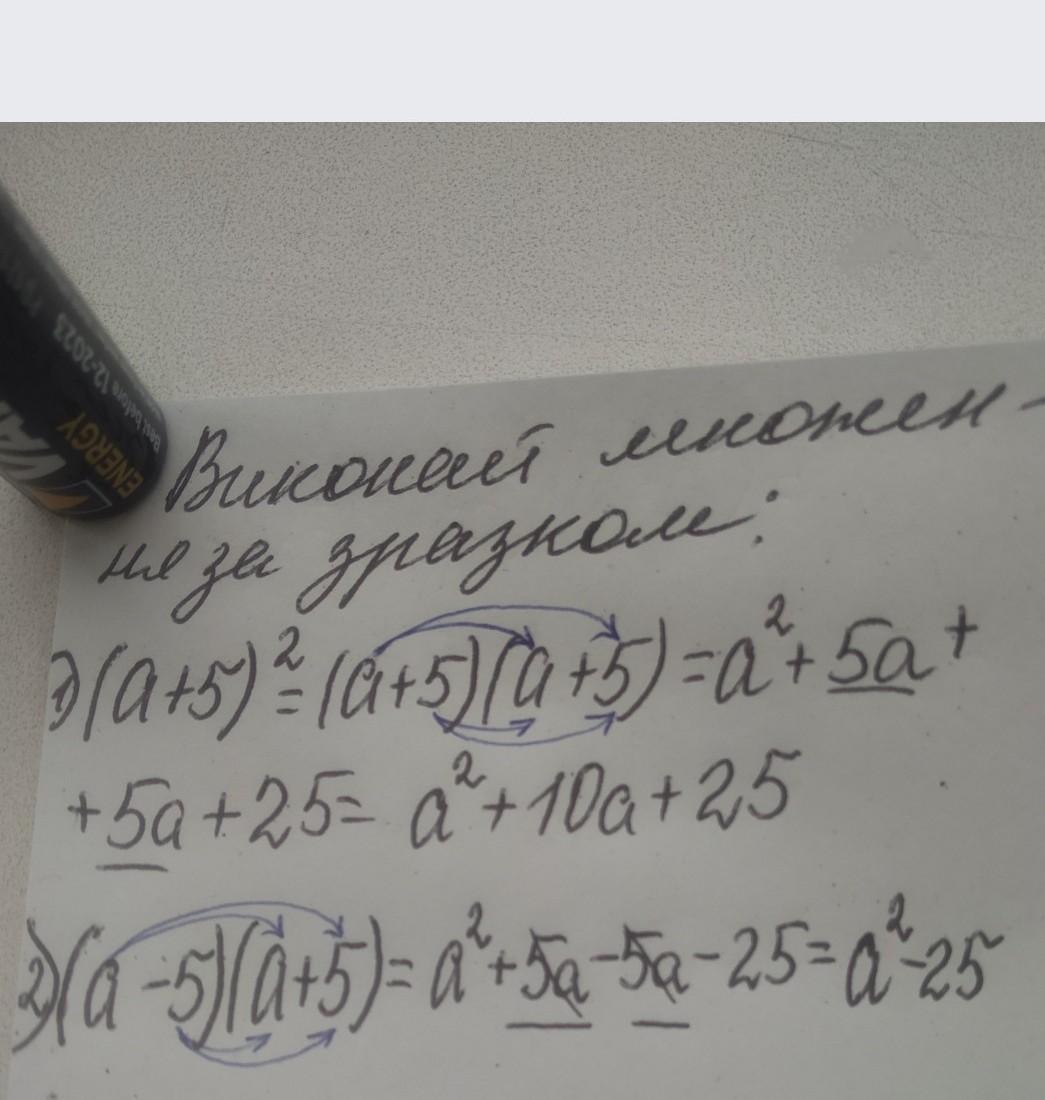 Best before 12-2023
ENERGY
Виконай множен-
ня за зразком:
1) (a+5)² = (a+5)(a+5) = a² + 5a +
+ 5a + 25 = a² + 10a + 25
2) (a - 5)(a + 5) = a² + 5a - 5a - 25 = a² - 25